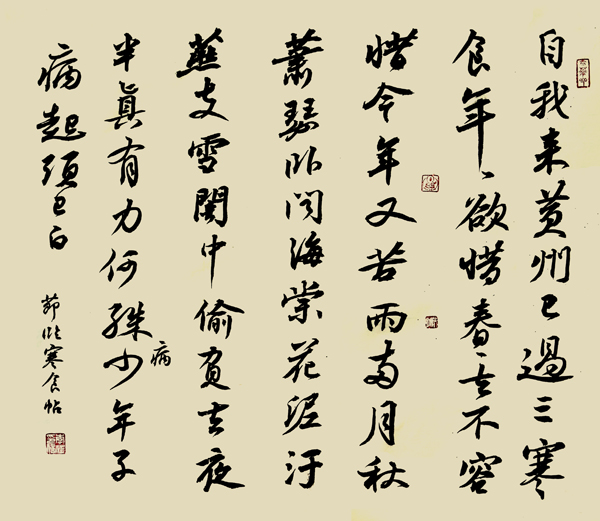 自我来黄州已過三寒
食年々欲惜春々去不容
惜今年又苦雨兩月秋
蕭瑟卧闻海棠花泥汙
燕支雪闇中偷負去夜
半真有力何殊少年子
病
病起須已白
節臨寒食帖